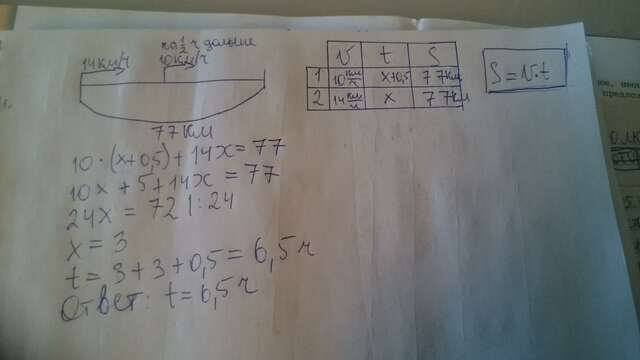 на 1/2 ч дольше
14км/ч 10км/ч
77 КМ
V t S
1 10 км/ч x+0,5 77км
2 14 км/ч x 77км
S = V·t
10·(x+0,5)+14x=77
10x+5+14x=77
24x=72 |:24
x=3
t=3+3+0,5=6,5ч
Ответ: t=6,5ч